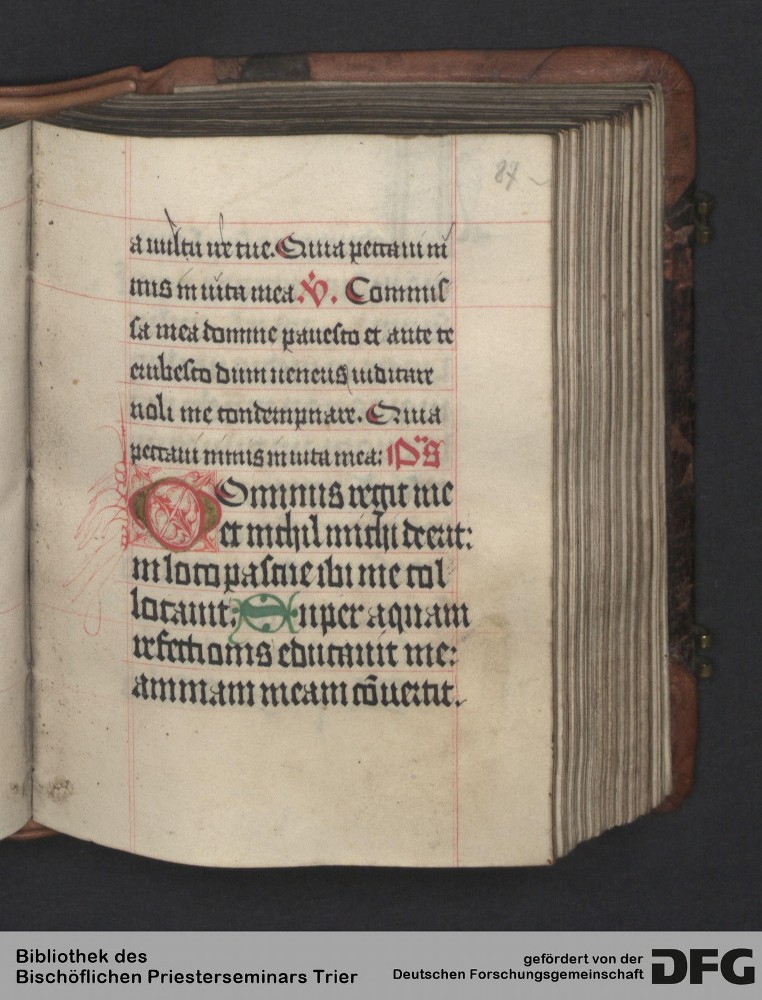 84
a uultu ire tue. Quia peccaui ni
mis in uita mea. V. Commis
sa mea domine pauesco et ante te
erubesco dum ueneris iudicare
noli me condempnare. Quia
peccaui nimis in uita mea: Ps
Dominus regit me
et nichil michi deerit:
in loco pascue ibi me col
locauit: Super aquam
refectionis educauit me:
animam meam cōuertit.
Bibliothek des
Bischöflichen Priesterseminars Trier
gefördert von der
Deutschen Forschungsgemeinschaft
DFG